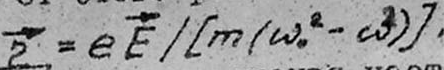 r⃗ = e E⃗ / [m(ω₀² - ω²)].